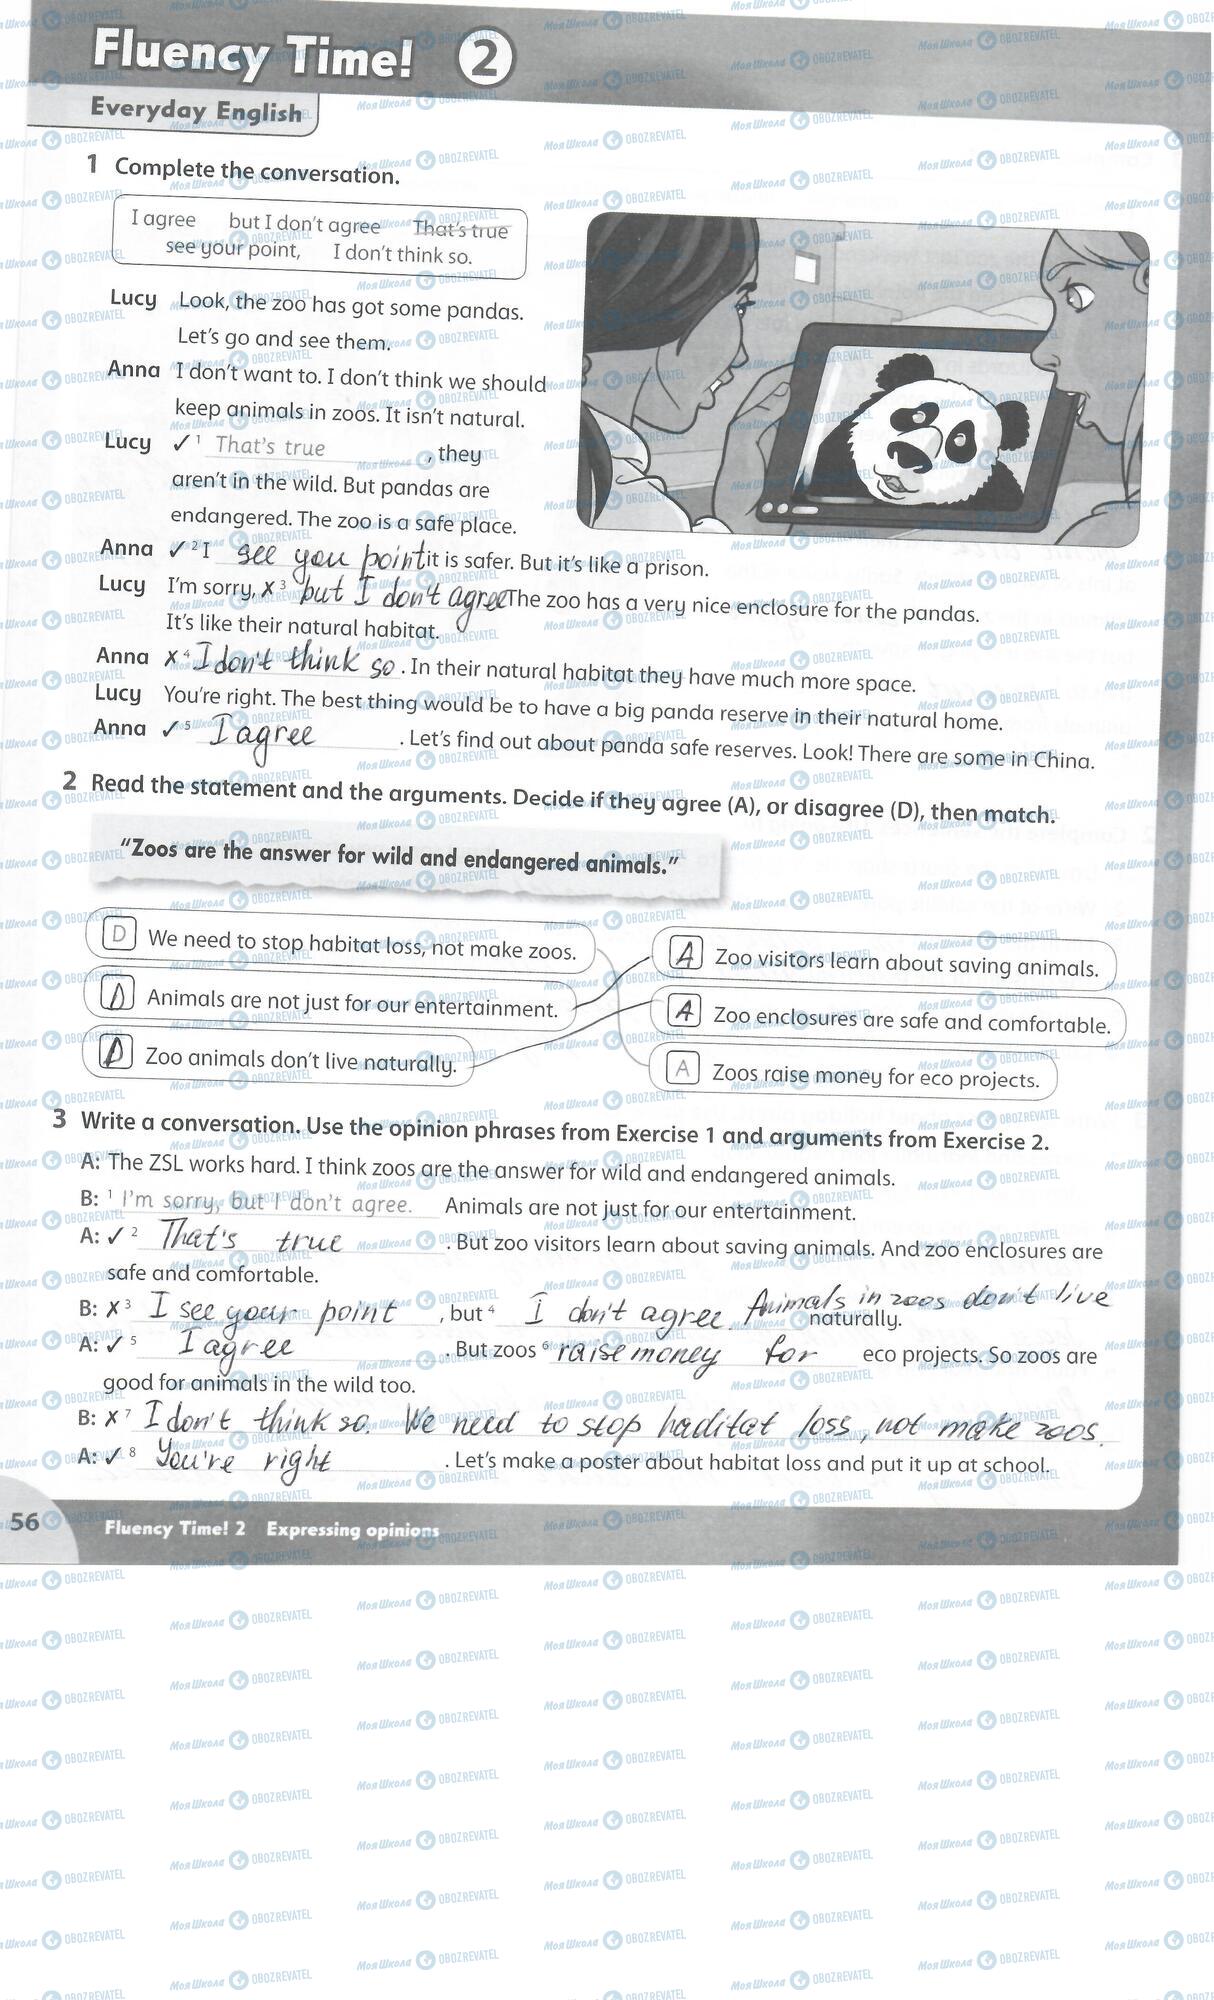 Fluency Time! 2
Everyday English
1 Complete the conversation.
I agree but I don't agree That's true
see your point, I don't think so.
Lucy Look, the zoo has got some pandas.
Let's go and see them.
Anna I don't want to. I don't think we should
keep animals in zoos. It isn't natural.
Lucy ✓ 1 That's true , they
aren't in the wild. But pandas are
endangered. The zoo is a safe place.
Anna ✓ 2 I see you point it is safer. But it's like a prison.
Lucy I'm sorry, X 3 but I don't agree The zoo has a very nice enclosure for the pandas.
It's like their natural habitat.
Anna X 4 I don't think so . In their natural habitat they have much more space.
Lucy You're right. The best thing would be to have a big panda reserve in their natural home.
Anna ✓ 5 I agree . Let's find out about panda safe reserves. Look! There are some in China.
2 Read the statement and the arguments. Decide if they agree (A), or disagree (D), then match.
"Zoos are the answer for wild and endangered animals."
D We need to stop habitat loss, not make zoos.
A Zoo visitors learn about saving animals.
D Animals are not just for our entertainment.
A Zoo enclosures are safe and comfortable.
D Zoo animals don't live naturally.
A Zoos raise money for eco projects.
3 Write a conversation. Use the opinion phrases from Exercise 1 and arguments from Exercise 2.
A: The ZSL works hard. I think zoos are the answer for wild and endangered animals.
B: 1 I'm sorry, but I don't agree. Animals are not just for our entertainment.
A: ✓ 2 That's true . But zoo visitors learn about saving animals. And zoo enclosures are
safe and comfortable.
B: X 3 I see your point , but 4 I don't agree. Animals in zoos don't live naturally.
A: ✓ 5 I agree . But zoos 6 raise money for eco projects. So zoos are
good for animals in the wild too.
B: X 7 I don't think so. We need to stop haditat loss, not make zoos.
A: ✓ 8 You're right . Let's make a poster about habitat loss and put it up at school.
56 Fluency Time! 2 Expressing opinions
МояШкола OBOZREVATEL